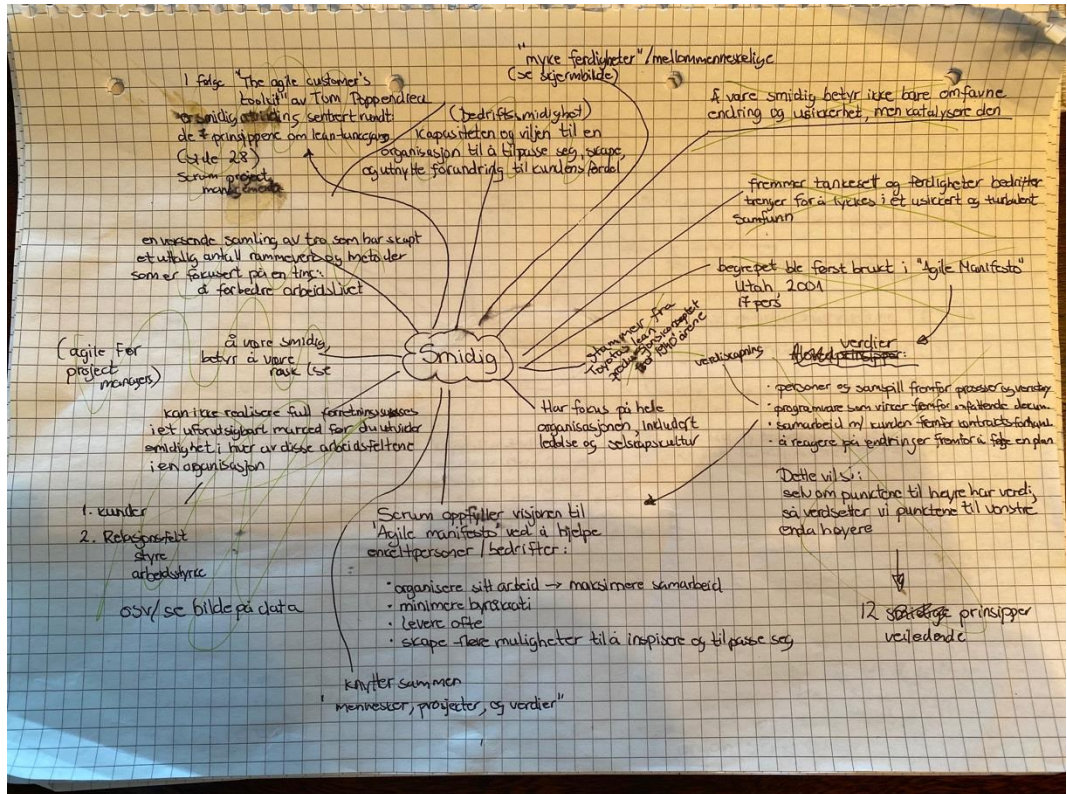 "myke ferdigheter"/mellommenneskelige
(se skjermbilde)
I følge "The agile customer's
toolkit" av Tom Poppendieck
er smidig sentrert rundt:
de 7 prinsippene om lean-tankegang
(side 28)
Scrum project
management
(bedriftsmidighet)
Kapasiteten og viljen til en
organisasjon til å tilpasse seg, skape,
og utnytte forundring til kundens fordel
Å være smidig betyr ikke bare omfavne
endring og usikkerhet, men katalysere den
fremmer tankesett og ferdigheter bedrifter
trenger for å lykkes i et usikkert og turbulent
samfunn
en voksende samling av tro som har skapt
et utallig antall rammeverk og metoder
som er fokusert på en ting:
å forbedre arbeidslivet
begrepet ble først brukt i "Agile Manifesto"
Utah 2001
17 pers
(agile for
project
managers)
å være smidig
betyr å være
rask (se
Smidig
stammer fra
Toyotas lean
produksjonskonseptet
1940 årene
verdiskapning
verdier
Hovedprinsipper:
· personer og samspill fremfor prosesser og verktøy
· programvare som virker fremfor omfattende dokum.
· samarbeid m/ kunden fremfor kontraktsforhandl.
· å reagere på endringer fremfor å følge en plan
Dette vil si:
selv om punktene til høyre har verdi,
så verdsetter vi punktene til venstre
enda høyere
12 prinsipper
veiledende
Har fokus på hele
organisasjonen, inkludert
ledelse og selskapskultur
kan ikke realisere full forretningssuksess
i et uforutsigbart marked før du utvider
smidighet i hver av disse arbeidsfeltene
i en organisasjon
1. kunder
2. Relasjonsfelt
styre
arbeidstyrke
osv/se bilde på data
Scrum oppfyller visjonen til
'Agile manifesto' ved å hjelpe
enkeltpersoner / bedrifter:
· organisere sitt arbeid → maksimere samarbeid
· minimere byråkrati
· levere ofte
· skape flere muligheter til å inspisere og tilpasse seg
knytter sammen
"mennesker, prosjekter, og verdier"